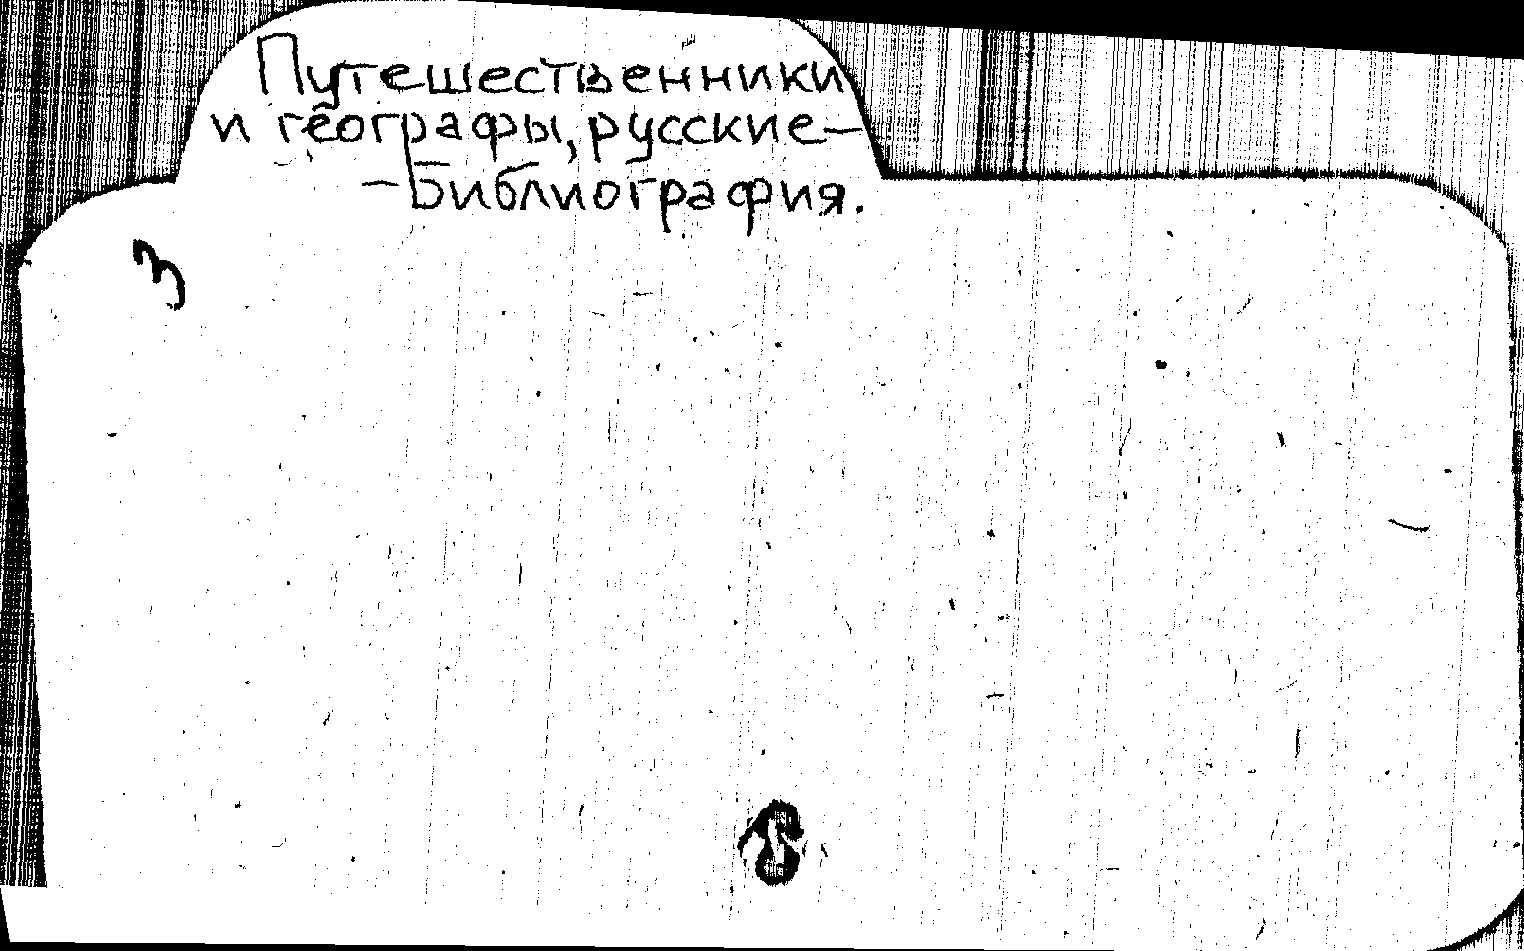 Путешественники
и географы, русские—
—Библиография.
З